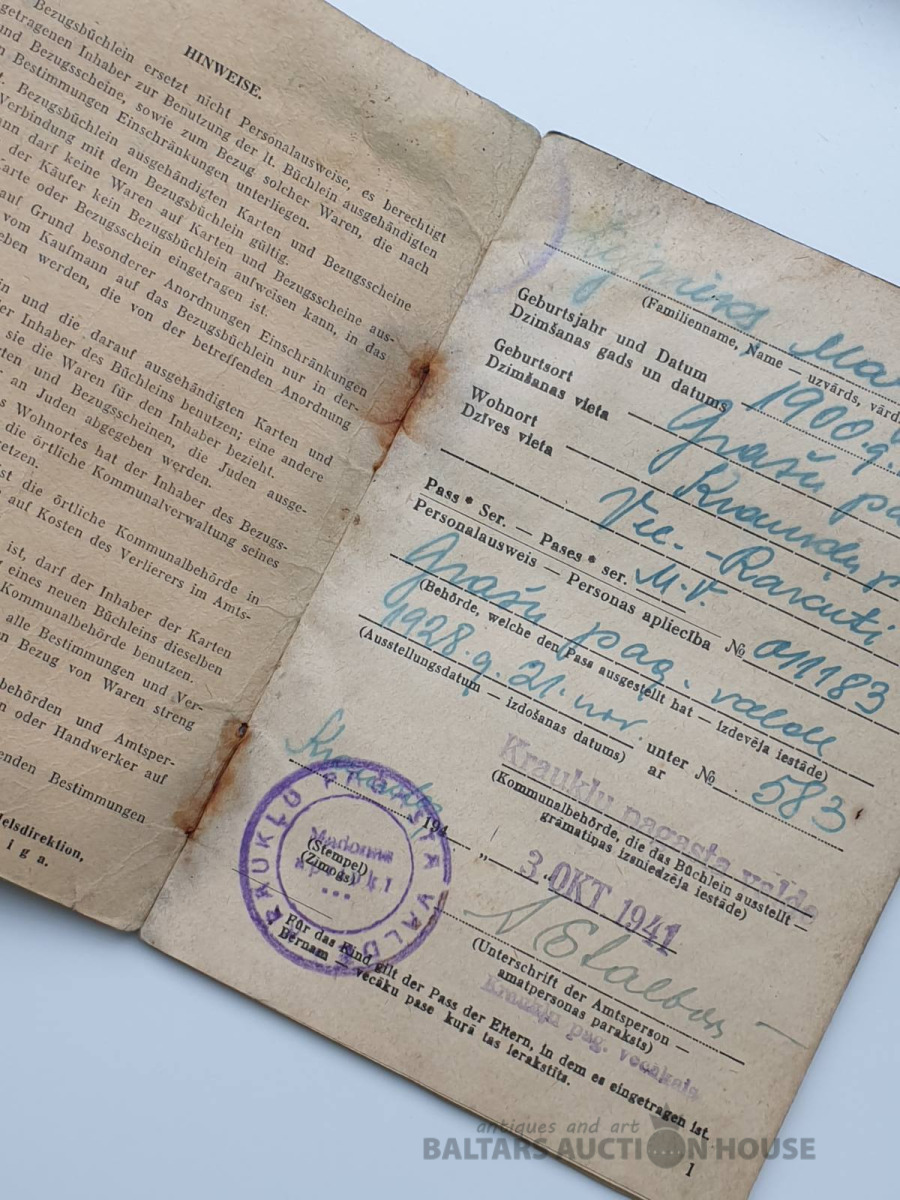 HINWEISE.
Bezugsbüchlein ersetzt nicht Personalausweise, es berechtigt
getragenen Inhaber zur Benutzung der lt. Büchlein ausgehändigten
und Bezugsscheine, sowie zum Bezug solcher Waren, die nach
Bestimmungen Einschränkungen unterliegen.
Bezugsbüchlein ausgehändigten Karten und Bezugsscheine
Verbindung mit dem Bezugsbüchlein gültig.
darf keine Waren auf Karten und Bezugsscheine aus-
der Käufer kein Bezugsbüchlein aufweisen kann, in das
Karte oder Bezugsschein eingetragen ist.
auf Grund besonderer Anordnungen Einschränkungen
vom Kaufmann auf das Bezugsbüchlein nur in der-
werden, die von der betreffenden Anordnung
und die darauf ausgehändigten Karten
der Inhaber des Büchleins benutzen; eine andere
sie die Waren für den Inhaber bezieht.
und Bezugsscheinen, die Juden ausge-
an Juden abgegeben werden.
Wohnortes hat der Inhaber des Bezugs-
die örtliche Kommunalverwaltung seines
setzen.
ist die örtliche Kommunalbehörde in
auf Kosten des Verlierers im Amts-
ist, darf der Inhaber der Karten
eines neuen Büchleins dieselben
Kommunalbehörde benutzen.
alle Bestimmungen und Ver-
Bezug von Waren streng
behörden und Amtsper-
oder Handwerker auf
enden Bestimmungen
elsdirektion,
iga.
(Familienname, Name — uzvārds, vārd
Geburtsjahr und Datum
Dzimšanas gads un datums 1900.9.
Geburtsort
Dzimšanas vieta Grašu pa
Wohnort
Dzīves vieta
Vec.-
Pass * Ser. — Pases * ser. M.V.
Personalausweis — Personas apliecība № 011183
Grašu pag. valde
(Behörde, welche den Pass ausgestellt hat — izdevēja iestāde)
1928.g. 21. nov. unter № ar 583
(Ausstellungsdatum — izdošanas datums)
Kraukļu pagasta valde
(Kommunalbehörde, die das Büchlein ausstellt —
grāmatiņas izsniedzēja iestāde)
194
3. OKT. 1941
KRAUKĻU PAGASTA VALDE
Madonas
apriņķī
(Stempel)
(Zīmogs)
(Unterschrift der Amtsperson —
amatpersonas paraksts)
Kraukļu pag. vecākais
Für das Kind gilt der Pass der Eltern, in dem es eingetragen ist.
Bērnam — vecāku pase kurā tas ierakstīts.
1
antiques and art
BALTARS AUCTION HOUSE